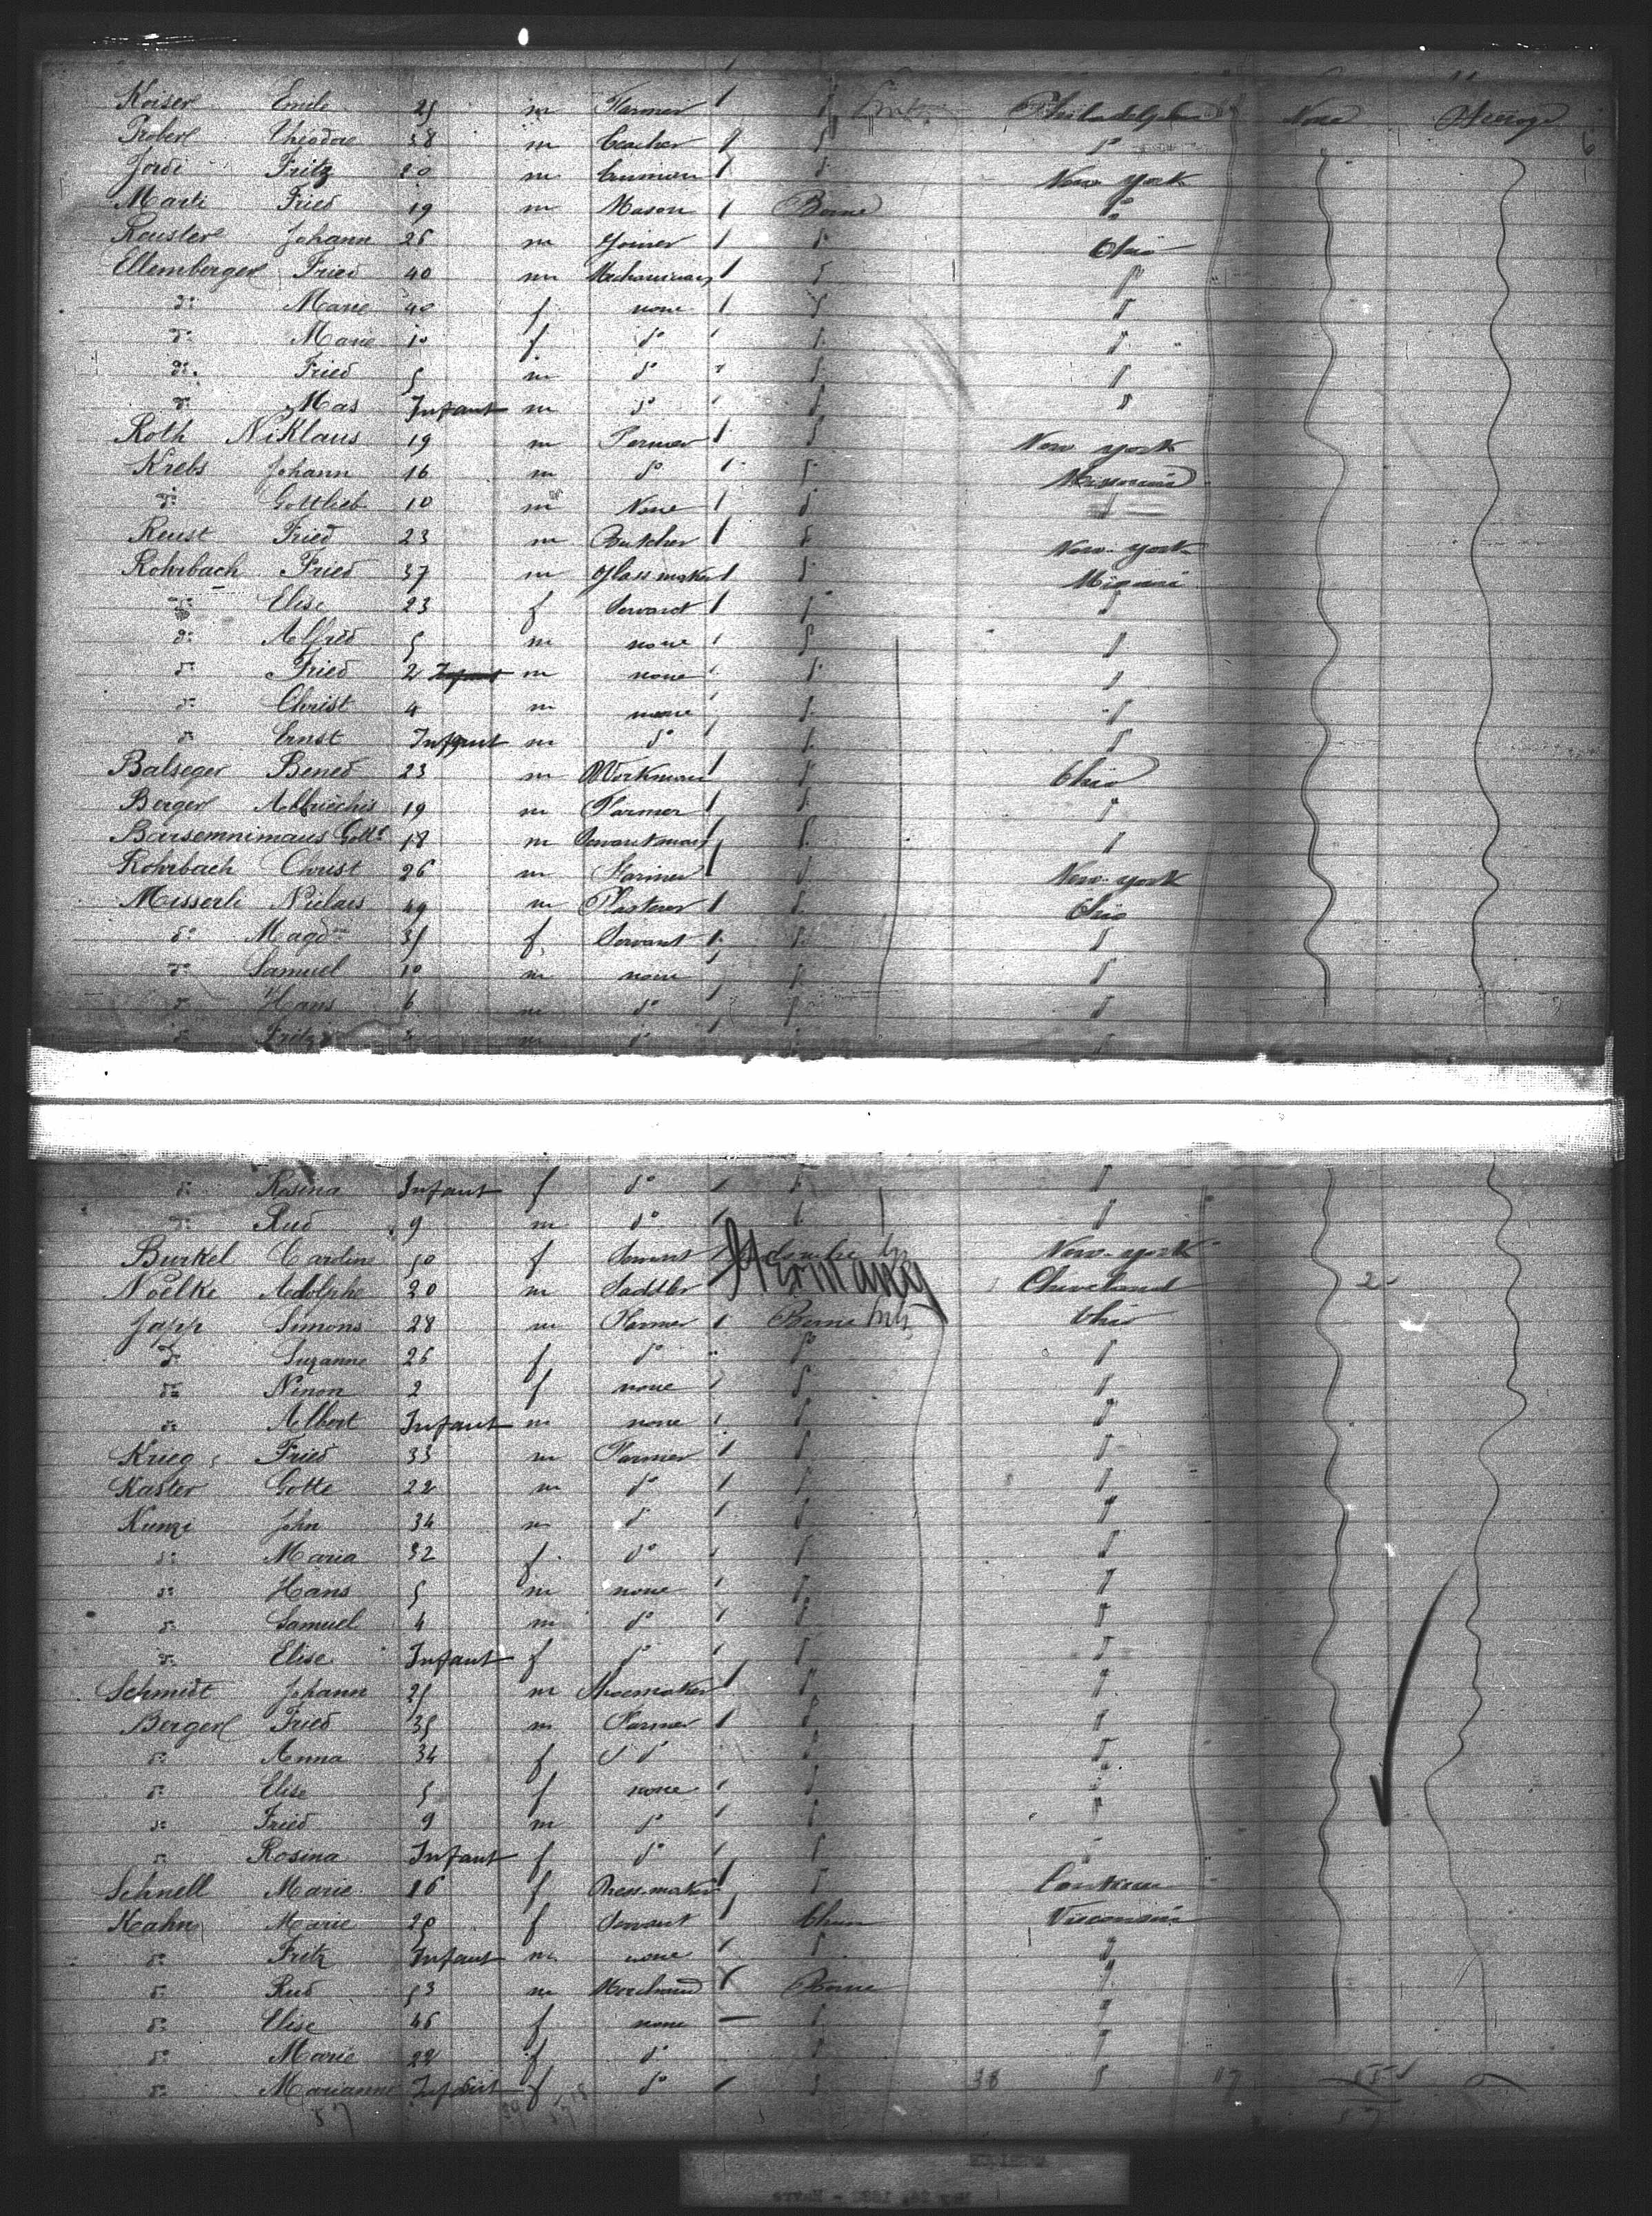 Koiser Emile 25 m Farmer 1 do Philadelphia None Steerage
Probert Theodore 38 m Teacher do do
Jordi Fritz 20 m 1 do New York
Marti Fried 19 m Mason 1 Berne do
Reuster Johann 25 m Joiner 1 do Ohio
Ellemberger Fried 40 m Mechanician 1 do do
do Marie 40 f none 1 do do
do Marie 10 f do do do
do Fried 5 m do do do
do Mas Infant m do do do
Roth Niklaus 19 m Farmer 1 do New York
Krebs Johann 16 m do 1 do Missouri
do Gottlieb 10 m None 1 do do
Reust Fried 23 m Butcher 1 do New York
Rohrbach Fried 37 m Glassmaker 1 do
do Elise 23 f Servant 1 do do
do Alfred 5 m none 1 do do
do Fried 2 Infant m none do do
do Christ 4 m none do do
do Ernst Infant m do do do
Balseger Bened 23 m Workman 1 do Ohio
Berger 19 m Farmer 1 do do
Barsemnimaus Gott 18 m Servantman 1 do do
Rohrbach Christ 26 m Farmer 1 do New York
Misserli Niclais 49 m Plasterer 1 do Ohio
do Magd 35 f Servant 1 do do
do Samuel 10 m none do do
do Hans 6 m do do do
do Fritz m do do do
do Rosina Infant f do 1 do do
do Rud 9 m do 1 do do
Burkel Caroline 50 f Servant 1 New York
Noelke Adolphe 20 m Saddler Germany Cleveland 2
Japp Simons 28 m Farmer 1 Berne Ohio
do Suzanne 26 f do do do
do Ninon 2 f none do do
do Albert Infant m none 1 do do
Krieg Fried 33 m Farmer 1 do do
Kaster Gotte 22 m do 1 do do
Kunzi John 34 m do 1 do do
do Maria 32 f do do do
do Hans 5 m none 1 do do
do Samuel 4 m do 1 do do
do Elise Infant f do 1 do do
Schmidt Johann 25 m Shoemaker 1 do do
Berger Fried 35 m Farmer 1 do do
do Anna 34 f do do do
do Elise 5 f none 1 do do
do Fried 9 m do 1 do do
do Rosina Infant f do 1 do do
Schnell Marie 16 f Dressmaker 1 do
Kahn Marie 20 f Servant 1 Wisconsin
do Fritz Infant m none 1 do do
do Rud 53 m Merchand Berne do
do Elise 46 f none do do
do Marie 22 f do do do
do Marianne Infant f do do 38 do 17
57